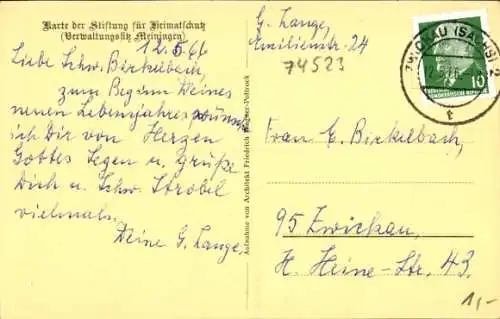 Karte der Stiftung für Heimatschutz
(Verwaltungssitz Meiningen)
12.5.66
Liebe Schw. Birkelbach,
zum Beginn Deines
neuen Lebensjahres wünsche
ich Dir von Herzen
Gottes Segen u. Grüße
Dich u. Schw. Strobel
vielmals.
Deine G. Lange.
Aufnahme von Architekt Friedrich
G. Lange,
Emilienstr. 24
74523
ZWICKAU (SACHS) 2
10
t
Frau E. Birkelbach,
95 Zwickau,
H. Heine-Str. 43.
1,-